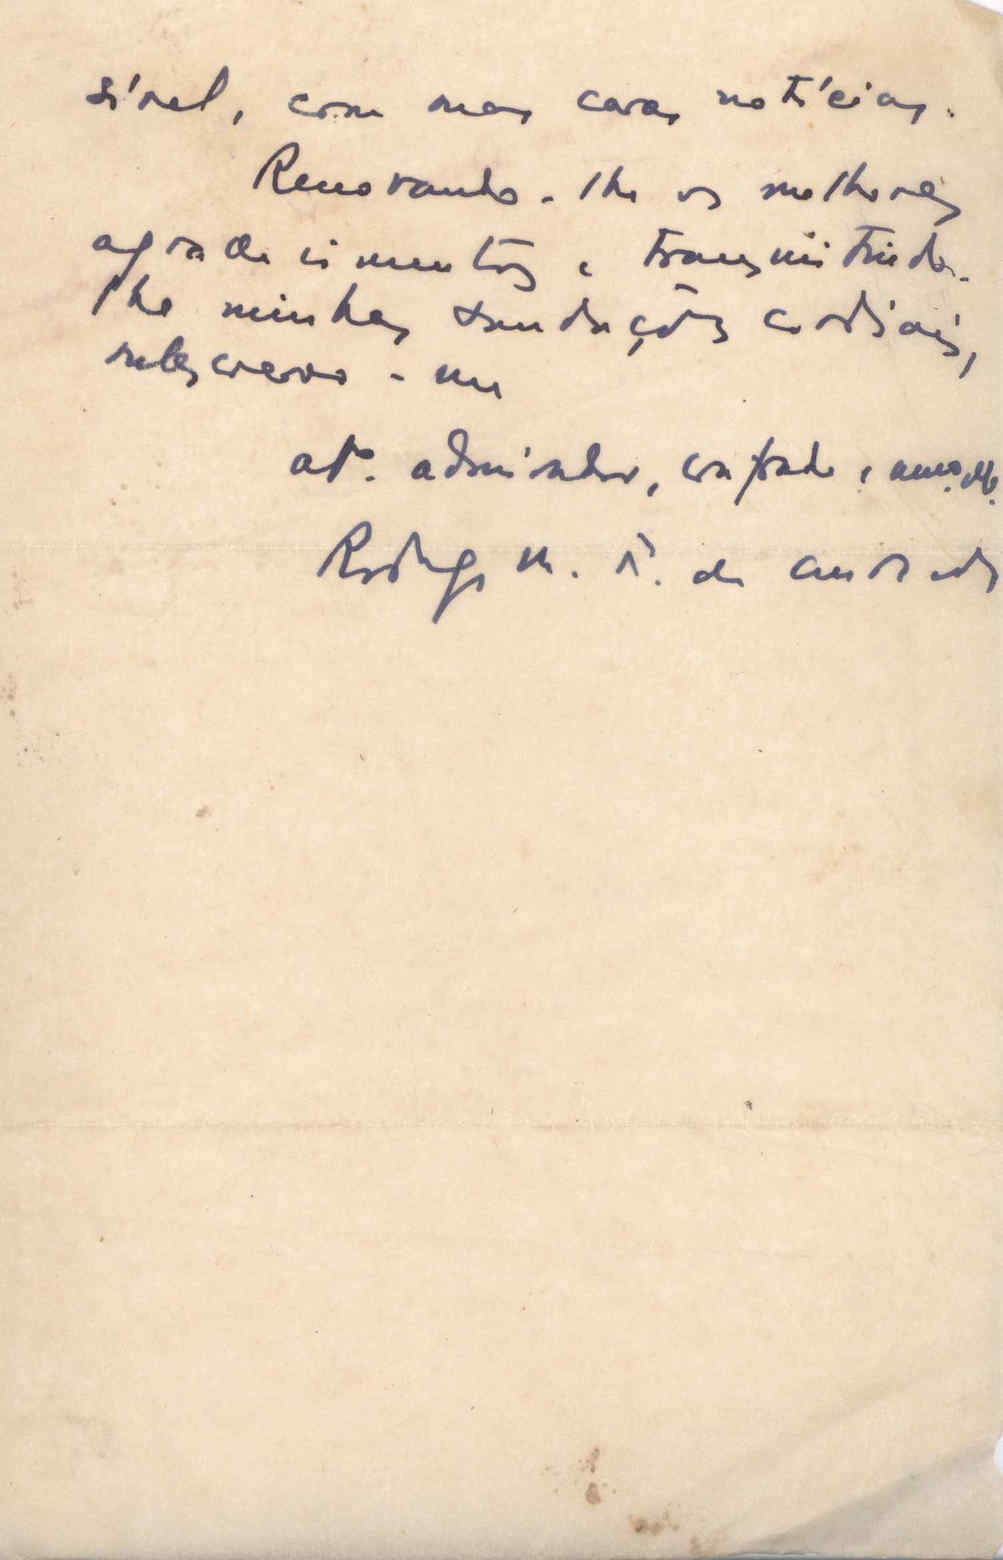 sível, com suas caras notícias.
Renovando-lhe os melhores
agradecimentos e transmitindo-
lhe minhas saudações cordiais,
subscrevo-me
atº. admirador, confrade e
Rodrigo M. F. de Andrade